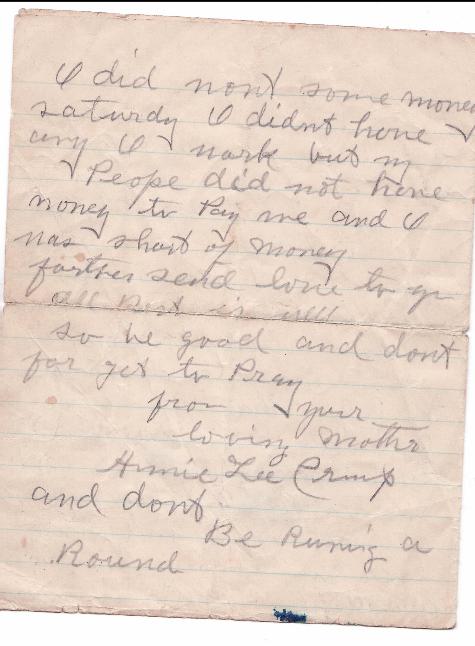 I did wont some money
saturdy I didnt have
any I work but my
Peope did not have
money to Pay me and I
was short of money
farther send love to yu
all is well
so be good and dont
for get to Pray
from your
loving mother
Annie Lee Crump
and dont
Be Runing a
Round